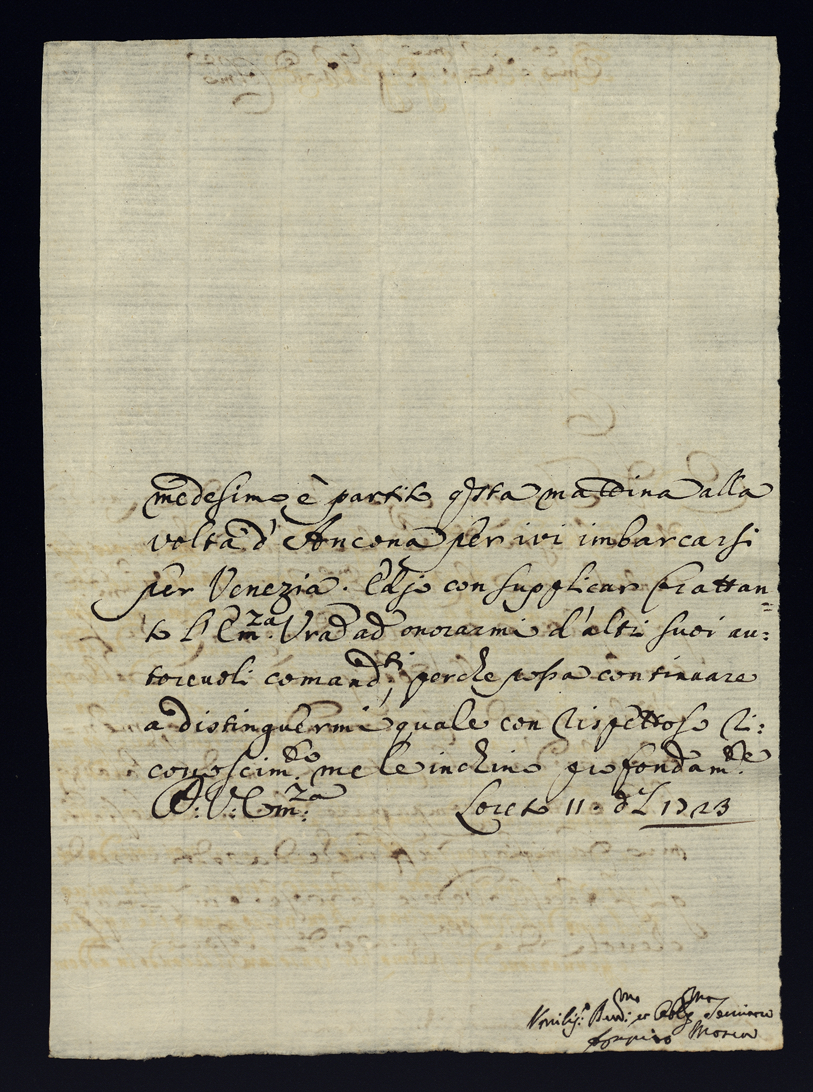 medesimo è partito qsta mattina alla
volta d'Ancona per ivi imbarcarsi
per Venezia. Ed io con supplicare frattan=
to l'Em:za Vra ad onorarmi d'altri suoi au:
torevoli comandti, perche possa continuare
a distinguermi quale con rispettoso ri:
conoscim:to me le inchino profondam:te
D: V: Em:za Loreto 11: 1723
Humiliss: Devmo et Oblgmo Servitore
Mosca